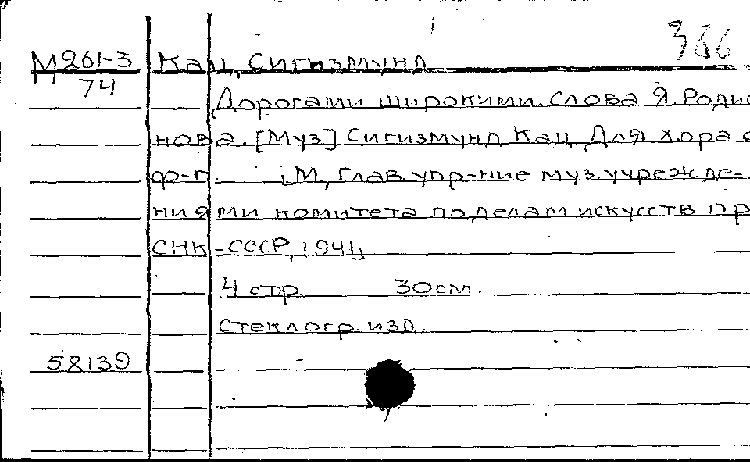 366
М261-3 Кац, Сигизмунд
74
Дорогами широкими. Слова Я. Роди
нова. [Муз.] Сигизмунд Кац. Для хора с
ф-п. М., Глав. упр-ние муз. учрежде-
ниями комитета по делам искусств пр
СНК-СССР, 1941,
4 стр. 30 см.
Стеклогр. изд.
58139